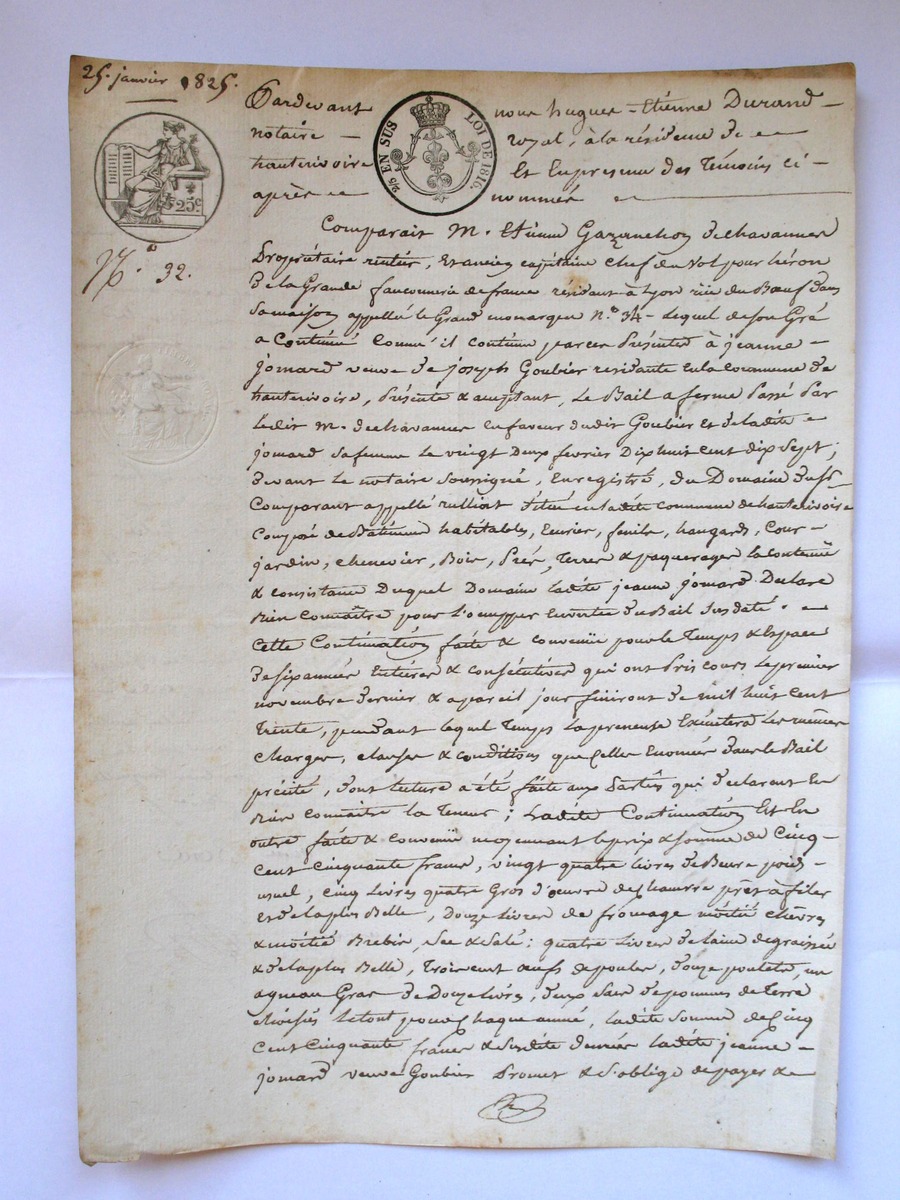 25. janvier 1825.
Pardevant nous hugues - Etienne Durand -
notaire - royal, à la résidence de
hauterivoire Et En presence des Témoins ci -
après nommés
25 EN SUS LOI DE 1816.
25c
N°. 32.
Comparait M. Etienne Gazanchon dechavannes
Propriétaire rentier, Et ancien capitaine chef du vol pour héron
de la Grande fauconnerie de france residant à Lyon rue du Bœuf dans
sa maison appellée le Grand monarque N.° 34 - Lequel de son Gré
a Continué Comme il continue par ces Présentes à jeanne -
jomard veuve de joseph Goubier residante en la commune de
hauterivoire, Présente & acceptant, Le Bail a ferme Passé Par
Ledit M. dechavannes en faveur dudit Goubier Et de ladite
jomard sa femme Le vingt deux fevrier Dix huit cent dix sept ;
devant le notaire soussigné, Enregistré, du Domaine dudit Sr
Comparant appellé rulliat situé en ladite commune de hauterivoire
Composé de Batiments habitables, Ecurier, fenile, hangards, Cour -
jardin, chenevier, Bois, Prés, Terres & paquerages la contenue
& consistance Duquel Domaine ladite jeanne jomard Declare
Bien Connaître pour l'occupper En vertu du Bail susdaté. -
Cette Continuation faite & convenue pour le Temps & Espace
de six années Entières & consécutives qui ont Pris cours Le premier
novembre dernier & a pareil jour finiront de mil huit cent
Trente, pendant lequel Temps La preneuse Exécutera Les mêmes
Charges, clauses & conditions que Celles Enoncées dans le Bail
précité, dont lecture a été faite aux Parties qui declarent En
Bien connaitre la Teneur ; Ladite Continuation Est En
outre faite & convenue moyennant le prix & somme de Cinq
cent cinquante francs, vingt quatre livres de Beurre poids -
usuel, cinq Livres quatre Gros d'œuvre de chanvre prêt à filer
Et de la plus Belle, Douze Livres de fromage moitié chèvres
& moitié Brebis, sec & salé : quatre Livres de laine degraissée
& de la plus Belle, Trois cent œufs de poules, douze poulets, un
agneau Gras de Douze Livres, deux sacs de pommes de Terre
choisies le tout pour chaque année, ladite somme de Cinq
cent cinquante francs & susdite denrées ladite jeanne -
jomard veuve Goubier Promet & s'oblige de payer &